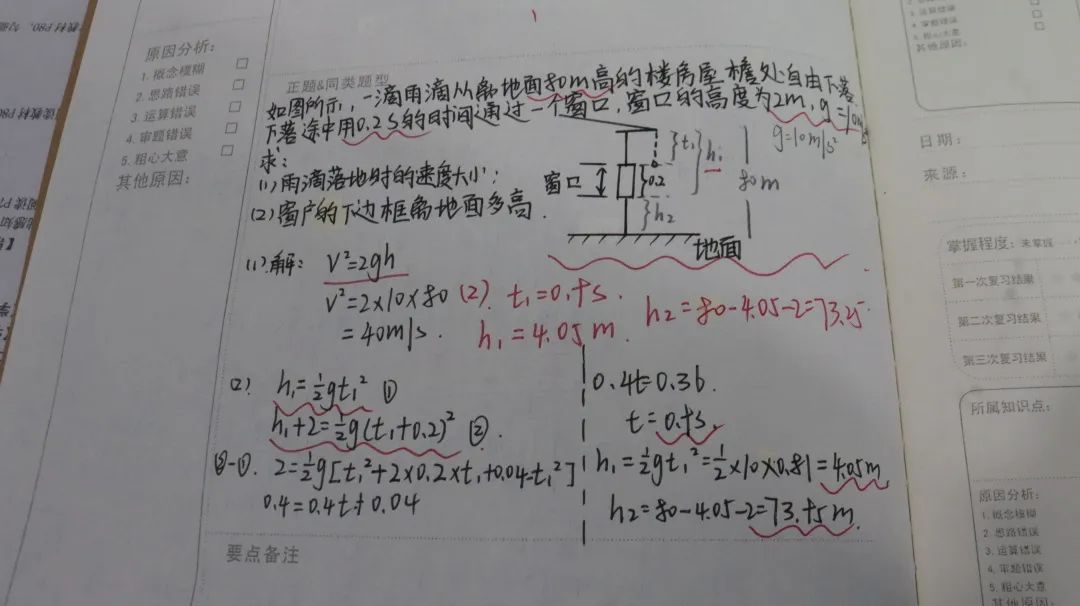 原因分析：
1. 概念模糊 □
2. 思路错误 □
3. 运算错误 □
4. 审题错误 □
5. 粗心大意 □
其他原因：
正题&同类题型
如图所示，一滴雨滴从离地面80m高的楼房屋檐处自由下落，
下落途中用0.2s的时间通过一个窗口，窗口的高度为2m，g=10m/s²
g=10m/s²
求：
(1) 雨滴落地时的速度大小；
(2) 窗户的下边框离地面多高．
窗口
t₁
h₁
0.2
80m
h₂
地面
(1).解： v²=2gh
v²=2×10×80
=40m/s．
(2). t₁=0.9s．
h₁=4.05m．
h2=80-4.05-2=73.95
(2) h₁=½gt₁² ①
h₁+2=½g(t₁+0.2)² ②．
②-①． 2=½g[t₁²+2×0.2×t₁+0.04-t₁²]
0.4=0.4t+0.04
0.4t=0.36．
t=0.9s．
h₁=½gt₁²=½×10×0.81=4.05m
h2=80-4.05-2=73.95m．
要点备注
日期：
来源：
掌握程度：未掌握
第一次复习结果
第二次复习结果
第三次复习结果
所属知识点：
原因分析：
1. 概念模糊
2. 思路错误
3. 运算错误
4. 审题错误
5. 粗心大意
其他原因：